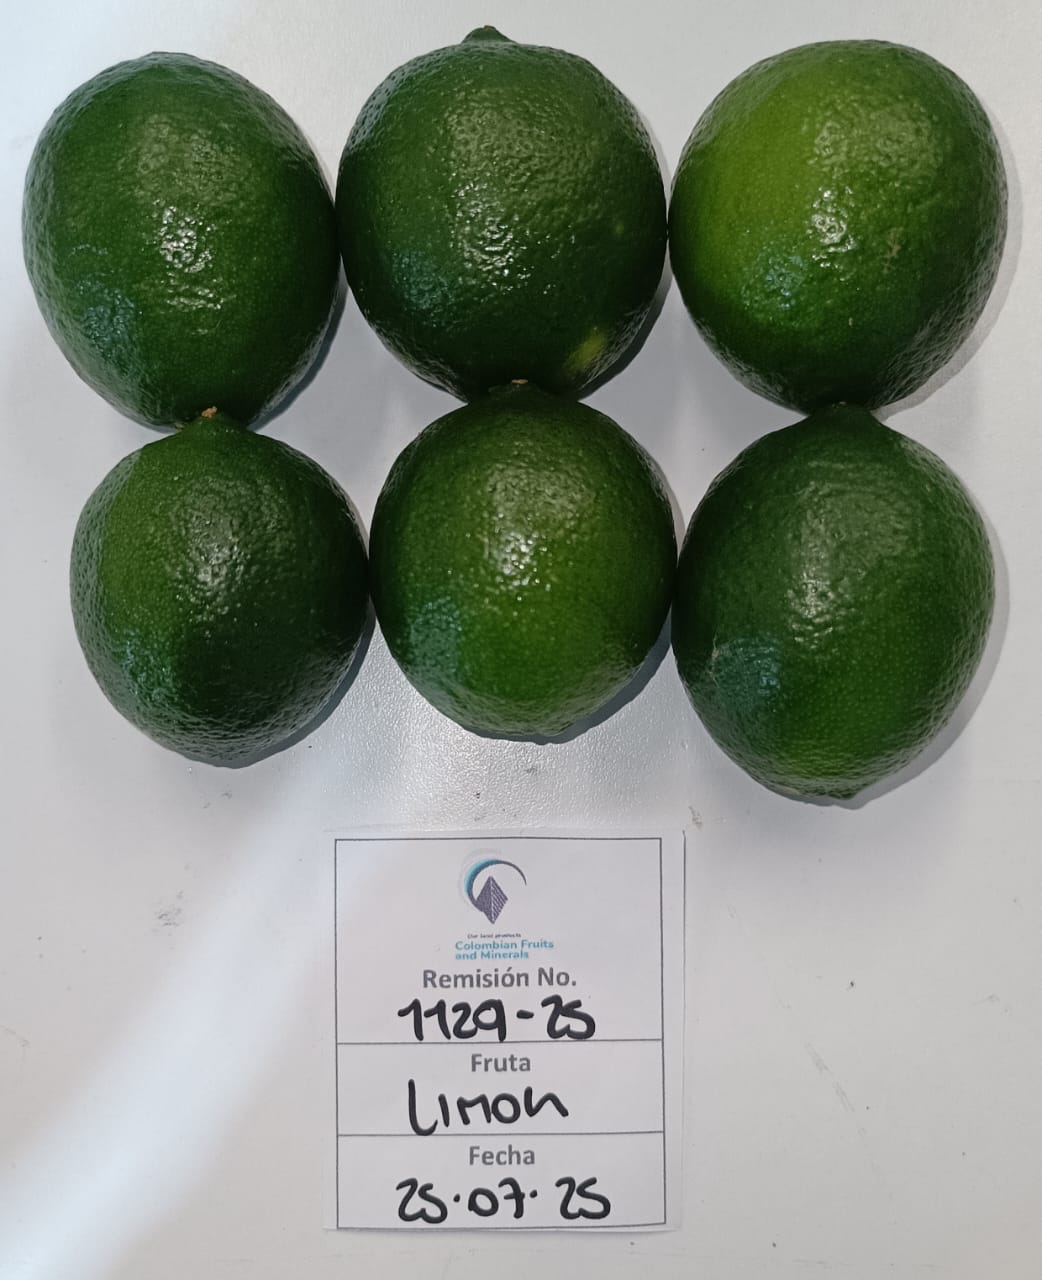 Our land products
Colombian Fruits
and Minerals
Remisión No.
1129-25
Fruta
Limon
Fecha
25.07.25